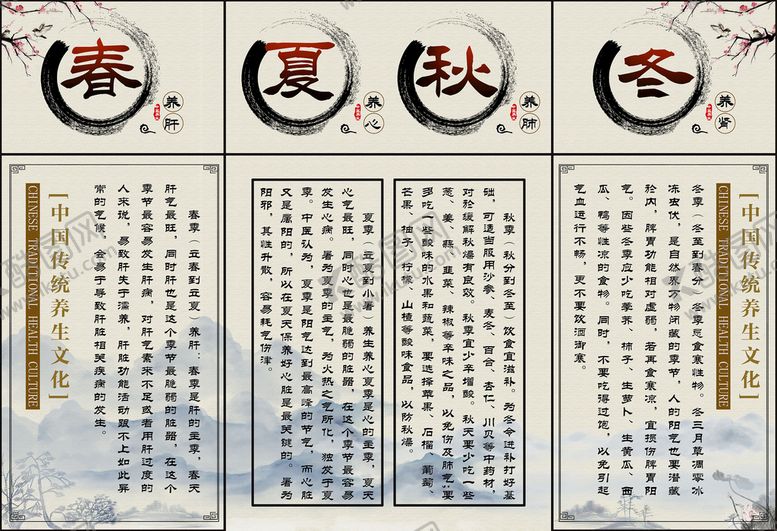 春
养肝
夏
养心
秋
养肺
冬
养肾
春季（立春到立夏）养肝：春季是肝的主季，春天
肝气最旺，同时肝也是这个季节最脆弱的脏器，在这个
季节最容易发生肝病，对肝气素来不足或者用肝过度的
人来说，易致肝失于濡养，肝脏功能活动跟不上如此异
常的气候，会易于导致肝脏相关疾病的发生。
CHINESE TRADITIONAL HEALTH CULTURE
[中国传统养生文化]
夏季（立夏到小暑）养生养心夏季是心的主季，夏天
心气最旺，同时心也是最脆弱的脏器，在这个季节最容易
发生心病。暑为夏季的主气，为火热之气所化，独发于夏
季。中医认为，夏季是阳气达到最高峰的节气，而心脏
又是属阳的，所以在夏天保养好心脏是最关键的。暑为
阳邪，其性升散，容易耗气伤津。
秋季（秋分到冬至）饮食宜滋补。为冬令进补打好基
础，可适当服用沙参、麦冬、百合、杏仁、川贝等中药材，
对于缓解秋燥有良效。秋季宜少辛增酸。秋天要少吃一些
葱、姜、蒜、韭菜、辣椒等辛味之品，以免伤及肺气要
多吃一些酸味的水果和蔬菜，要选择苹果、石榴、葡萄、
芒果、柚子、柠檬、山楂等酸味食品，以防秋燥。
[中国传统养生文化]
CHINESE TRADITIONAL HEALTH CULTURE
冬季（冬至到春分）冬季忌食寒性物。冬三月草凋零冰
冻虫伏，是自然界万物闭藏的季节，人的阳气也要潜藏
于内，脾胃功能相对虚弱，若再食寒凉，宜损伤脾胃阳
气。因些冬季应少吃荸荠、柿子、生萝卜、生黄瓜、西
瓜、鸭等性凉的食物。同时，不要吃得过饱，以免引起
气血运行不畅，更不要饮酒御寒。